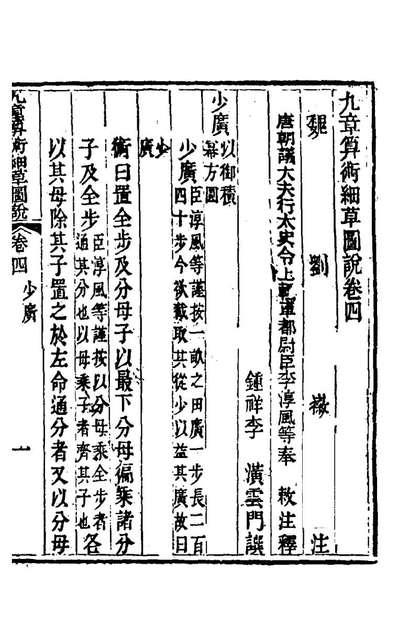 九章算術細草圖說卷四
魏　劉　徽　注
唐朝議大夫行太史令上輕車都尉臣李淳風等奉　敕注釋
鍾祥李　潢雲門譔
少廣以御積
冪方圓
少廣臣淳風等謹按一畝之田廣一步長二百
四十步今欲截取其從少以益其廣故曰
少
廣
術曰置全步及分母子以最下分母徧乘諸分
子及全步臣淳風等謹按以分母乘全步者
通其分也以母乘子者齊其子也各
以其母除其子置之於左命通分者又以分母
九章算術細草圖說　卷四　少廣　一